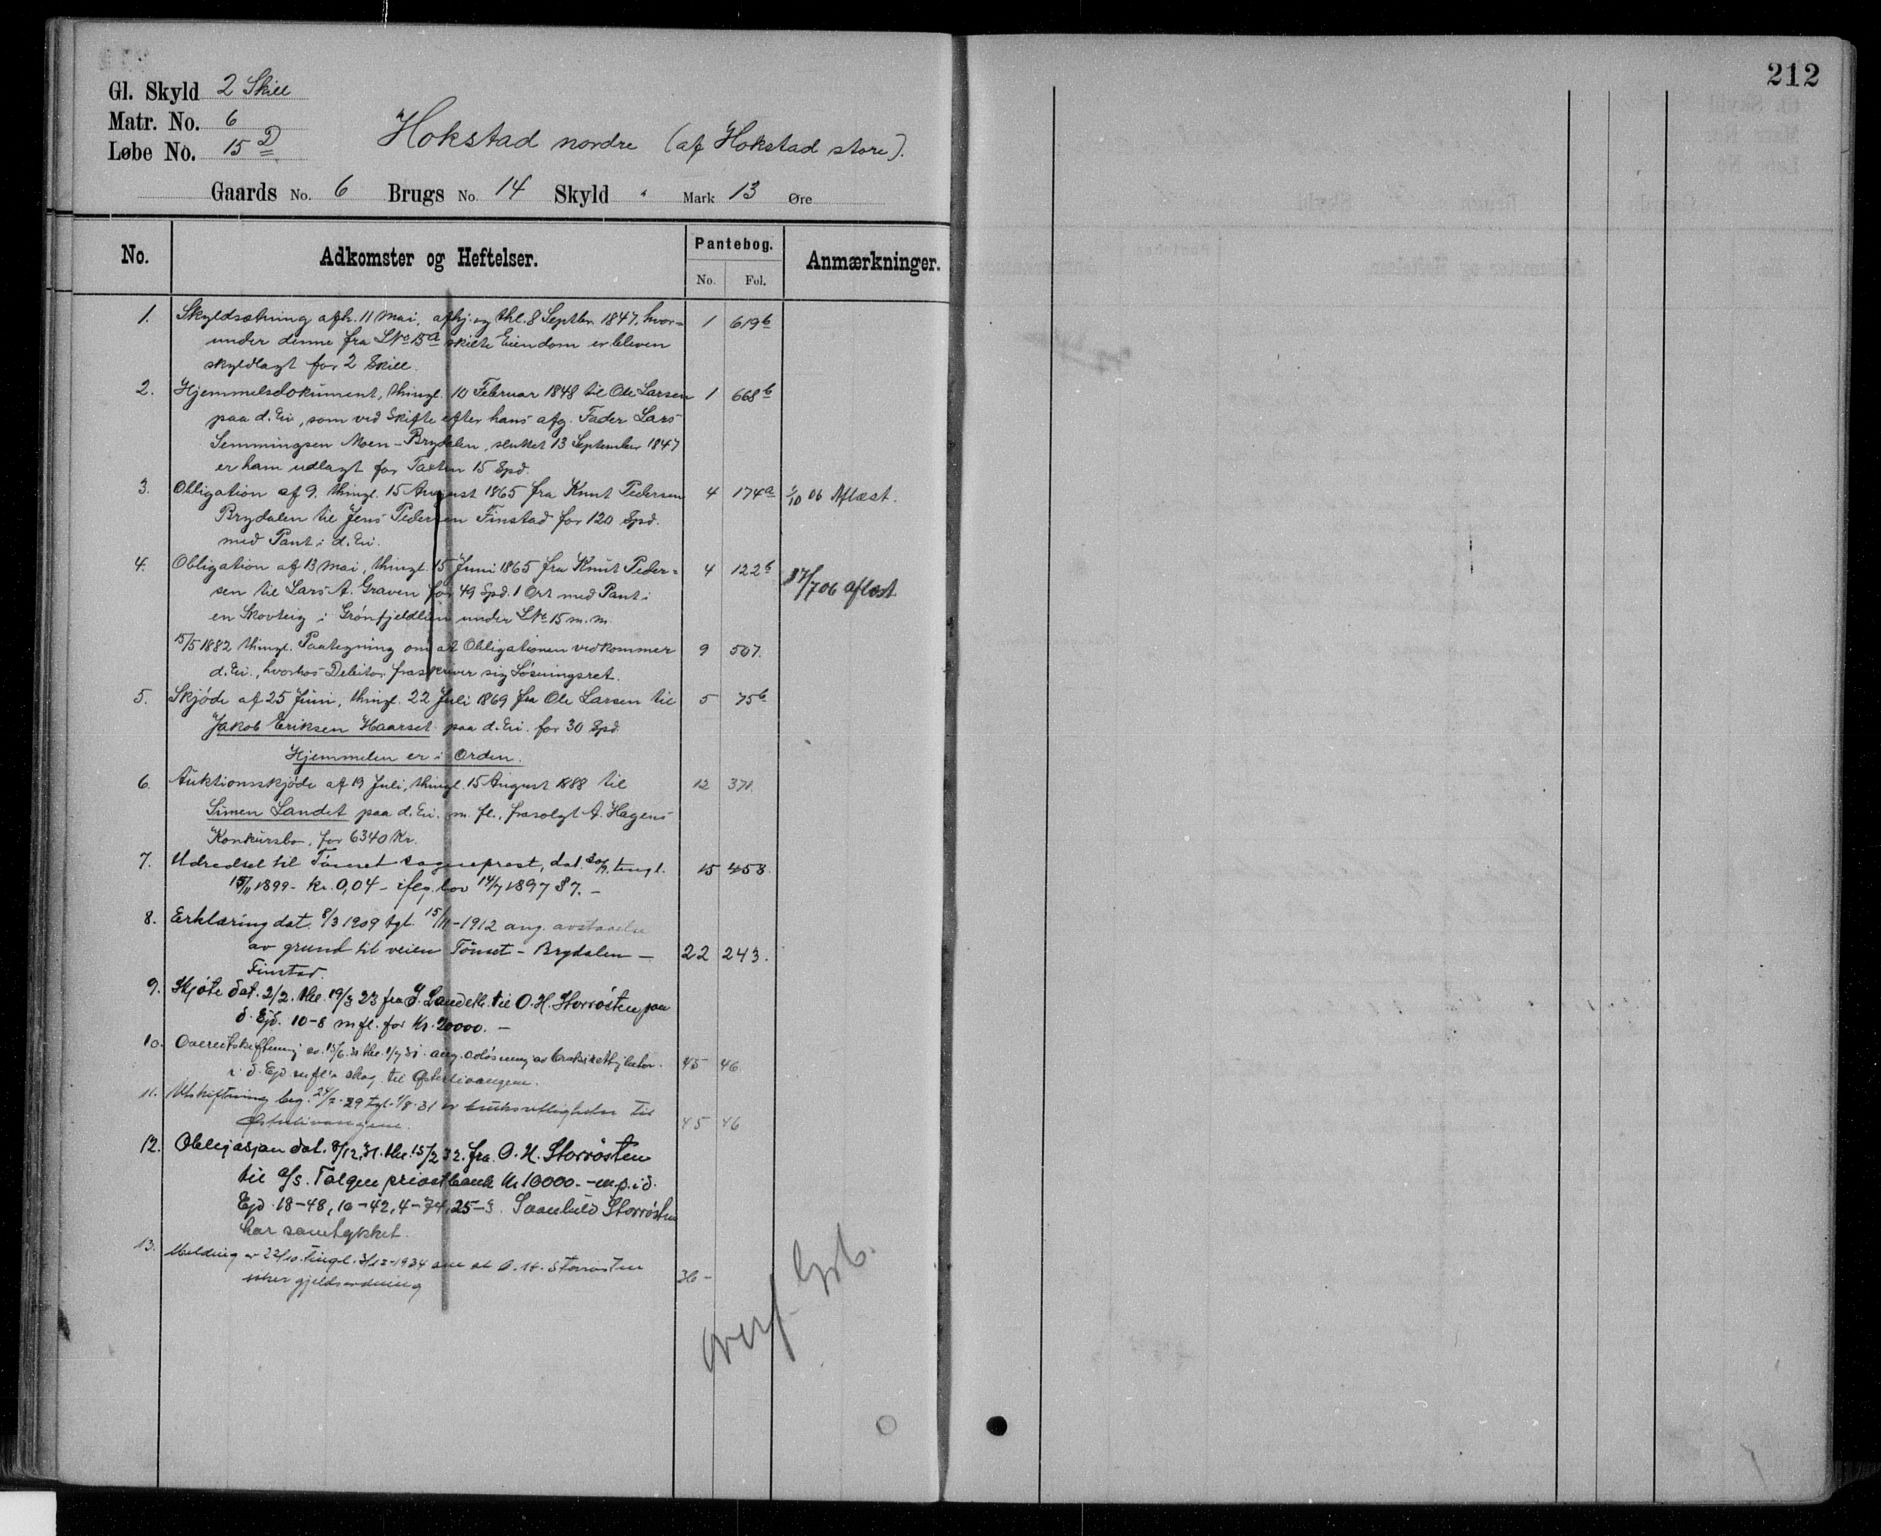 212
Gl. Skyld 2 Skill
Matr. No. 6
Løbe No. 15 D
Hokstad nordre (af Hokstad store).
Gaards No. 6 Brugs No. 14 Skyld " Mark 13 Øre
No. Adkomster og Heftelser. Pantebog. Anmærkninger.
No. Fol.
1. Skyldsætning afh. 11 Mai, afhj. og thl. 8 Septbr. 1847, hvor= 1 619b
under denne fra LNo 15a skilte Eiendom er bleven
skyldlagt for 2 Skill.
2. Hjemmelsdokument, thingl. 10 Februar 1848 til Ole Larsen 1 668b
paa d. Ei, som ved Skifte efter hans afg. Fader Lars
Semmingsen Moen-Brydalen, sluttet 13 September 1847
er ham udlagt for Taxten 15 Spd.
3. Obligation af 9, thingl. 15 August 1865 fra Knut Pedersen 4 174a 1/10 06 Aflæst.
Brydalen til Jens Pedersen Finstad for 120 Spd.
med Pant i d. Ei.
4. Obligation af 13 Mai, thingl. 15 Juni 1865 fra Knut Peder= 4 122b 17/7 06 aflæst
sen til Lars A. Graven for 49 Spd. 1 Ort med Pant i
en Skovteig i Grønfjeldlien under LNo 15 m. m.
15/5 1882 thingl. Paategning om at Obligationen vedkommer 9 507.
d. Ei., hvorhos Debitor fraskriver sig Løsningsret.
5. Skjøde af 25 Juni, thingl. 22 Juli 1869 fra Ole Larsen til 5 75b
Jakob Eriksen Haarset paa d. Ei. for 30 Spd.
Hjemmelen er i Orden.
6. Auktionsskjøde af 19 Juli, thingl. 15 August 1888 til 12 371.
Simen Landet paa d. Ei. m. fl., frasolgt A. Hagens
Konkursbo, for 6340 Kr.
7. Udredsel til Tønset sogneprest, dat. 20/9, tingl. 15 458.
15/11 1899 - kr. 0,04 - ifлg. lov 14/7 1897 § 7. -
8. Erklæring dat. 8/3 1909 tgl. 15/11-1912 ang. avstaaelse
av grund til veien Tönset - Brydalen - 22 243.
Finstad.
9. Skjøte dat. 2/2. thl. 19/3 23 fra S. Landet til O. H. Storrøsten paa
d. Ejd. 10-8 m fl. for Kr. 20000. -
10. Overutskiftning av 15/6 31 thl. 1/7 31 ang. avløsning av bruksrettigheter 45 46
i d. Ejd m fl's skog til Østlivangene.
11. Utskiftning beg. 27/2-29 tgl. 1/8-31 av bruksrettigheter til 45 46
Østlivangene.
12. Obligasjon dat. 8/12.31. thl. 15/2 32. fra O. H. Storrøsten
til a/s. Tolgen privatbank Kr 10000. - m. p. i d.
Ejd. 18-48, 10-42, 4-74, 25-3. Storrøsten
har samtykket.
13. Melding av 22/10. tingl. 3/12-1934 om at O. H. Storrøsten 36 -
søker gjeldsordning
overf. Grb.